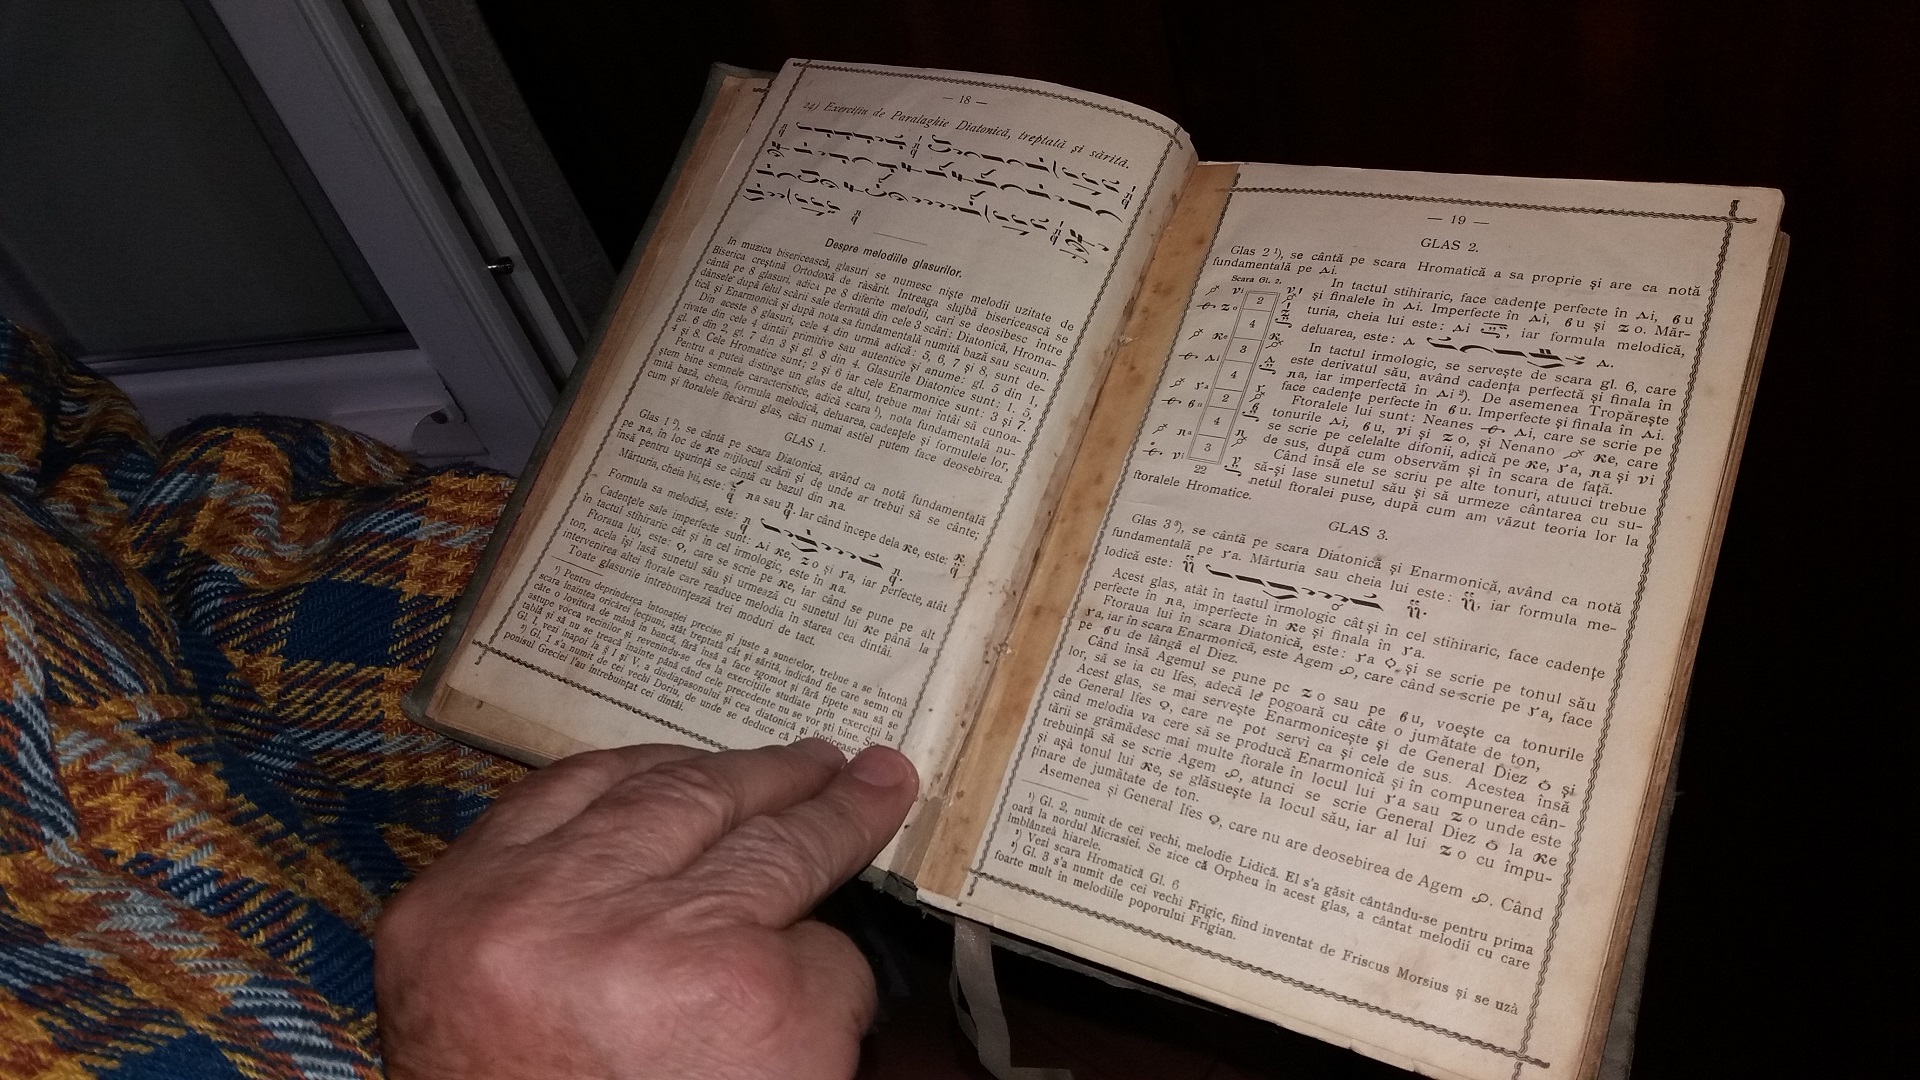 — 18 —
24) Exercițiu de Paralaghie Diatonică, treptată și sărită.
Despre melodiile glasurilor.
În muzica bisericească, glasuri se numesc niște melodii uzitate de
Biserica creștină Ortodoxă de răsărit. Intreaga slujbă bisericească se
cântă pe 8 glasuri, adică pe 8 diferite melodii, cari se deosibesc între
dânsele după felul scării sale derivată din cele 3 scări: Diatonică, Hroma-
tică și Enarmonică și după nota sa fundamentală numită bază sau scaun.
Din aceste 8 glasuri, cele 4 din urmă adică: 5, 6, 7 și 8, sunt de-
rivate din cele 4 dintâi primitive sau autentice și anume: gl. 5 din 1,
gl. 6 din 2, gl. 7 din 3 și gl. 8 din 4. Glasurile Diatonice sunt: 1. 5,
4 și 8. Cele Hromatice sunt; 2 și 6 iar cele Enarmonice sunt: 3 și 7.
Pentru a puteà distinge un glas de altul, trebue mai întâi să cunoa-
ștem bine semnele caracteristice, adică scara ¹), nota fundamentală nu-
mită bază, cheia, formula melodică, deluarea, cadențele și formulele lor,
cum și ftoralele fiecărui glas, căci numai astfel putem face deosebirea.
GLAS 1.
Glas 1 ²), se cântă pe scara Diatonică, având ca notă fundamentală
pe πa, în loc de ϰe mijlocul scării și de unde ar trebui să se cânte;
însă pentru ușurință se cântă cu bazul din πa.
Mărturia, cheia lui, este: π q πa sau π q. Iar când începe dela ϰe, este: ϰ q
Formula sa melodică, este: π q
Cadențele sale imperfecte sunt: Δi ϰe, zo și γa, iar perfecte, atât
în tactul stihiraric cât și în cel irmologic, este în πa.
Ftoraua lui, este: ϙ, care se scrie pe ϰe, iar când se pune pe alt
ton, acela își lasă sunetul său și urmează cu sunetul lui ϰe până la
intervenirea altei ftorale care readuce melodia în starea cea dintâi.
Toate glasurile intrebuințează trei moduri de tact.
¹) Pentru deprinderea intonației precise și juste a sunetelor, trebue a se intonà
scara înaintea oricărei lecțiuni, atât treptată cât și sărită, indicând fie care semn cu
câte o lovitură de mână în bancă, fără însă a face sgomot și fără țipete sau să se
astupe vocca vecinilor și revenindu-se des la exercițiile studiate prin exerciții la
tablă și să nu se treacă înainte până când cele precedente nu se vor ști bine.
Gl. I, vezi înapoi la § I și V, a disdiapasonului și cea diatonică și
²) Gl. I s'a numit de cei vechi Doriu, de unde se deduce că
ponisul Greciei l'au întrebuințat cei dintâi.
— 19 —
GLAS 2.
Glas 2 ¹), se cântă pe scara Hromatică a sa proprie și are ca notă
fundamentală pe Δi.
Scara Gl. 2.
νi 2
zo 4
ϰe 3
Δi 4
γa 2
ϐu 4
πa 3
νi 22
În tactul stihiraric, face cadențe perfecte în Δi, ϐu
și finalele în Δi. Imperfecte în Δi, ϐu și zo. Măr-
turia, cheia lui este: Δi, iar formula melodică,
deluarea, este: Δ Δ.
În tactul irmologic, se servește de scara gl. 6, care
este derivatul său, având cadența perfectă și finala în
πa, iar imperfectă în Δi ²). De asemenea Tropărește
face cadențe perfecte în ϐu. Imperfecte și finala în Δi.
Ftoralele lui sunt: Neanes Δi, care se scrie pe
tonurile Δi, ϐu, νi și zo, și Nenano ϰe, care
se scrie pe celelalte difonii, adică pe ϰe, γa, πa și νi
de sus, după cum observăm și în scara de față.
Când însă ele se scriu pe alte tonuri, atuuci trebue
să-și lase sunetul său și să urmeze cântarea cu su-
netul ftoralei puse, după cum am văzut teoria lor la
ftoralele Hromatice.
GLAS 3.
Glas 3 ³), se cântă pe scara Diatonică și Enarmonică, având ca notă
fundamentală pe γa. Mărturia sau cheia lui este: , iar formula me-
lodică este:
Acest glas, atât în tactul irmologic cât și în cel stihiraric, face cadențe
perfecte în πa, imperfecte în ϰe și finala în γa.
Ftoraua lui în scara Diatonică, este: γa ϙ și se scrie pe tonul său
γa, iar în scara Enarmonică, este Agem, care când se scrie pe γa, face
pe ϐu de lângă el Diez.
Când însă Agemul se pune pc zo sau pe ϐu, voește ca tonurile
lor, să se ia cu Ifes, adecă le pogoară cu câte o jumătate de ton,
Acest glas, se mai servește Enarmonicește și de General Diez și
de General Ifes, care ne pot servì ca și cele de sus. Acestea însă
când melodia va cere să se producă Enarmonică și în compunerea cân-
tării se grămădesc mai multe ftorale în locul lui γa sau zo unde este
trebuință să se scrie Agem, atunci se scrie General Diez la ϰe
și așà tonul lui ϰe, se glăsuește la locul său, iar al lui zo cu împu-
ținare de jumătate de ton.
Asemenea și General Ifes, care nu are deosebirea de Agem. Când
¹) Gl. 2, numit de cei vechi, melodie Lidică. El s'a găsit cântându-se pentru prima
oară la nordul Micrasiei. Se zice că Orpheu în acest glas, a cântat melodii cu care
îmblânzea hiarele.
²) Vezi scara Hromatică Gl. 6
³) Gl. 3 s'a numit de cei vechi Frigic, fiind inventat de Friscus Morsius și se uză
foarte mult în melodiile poporului Frigian.